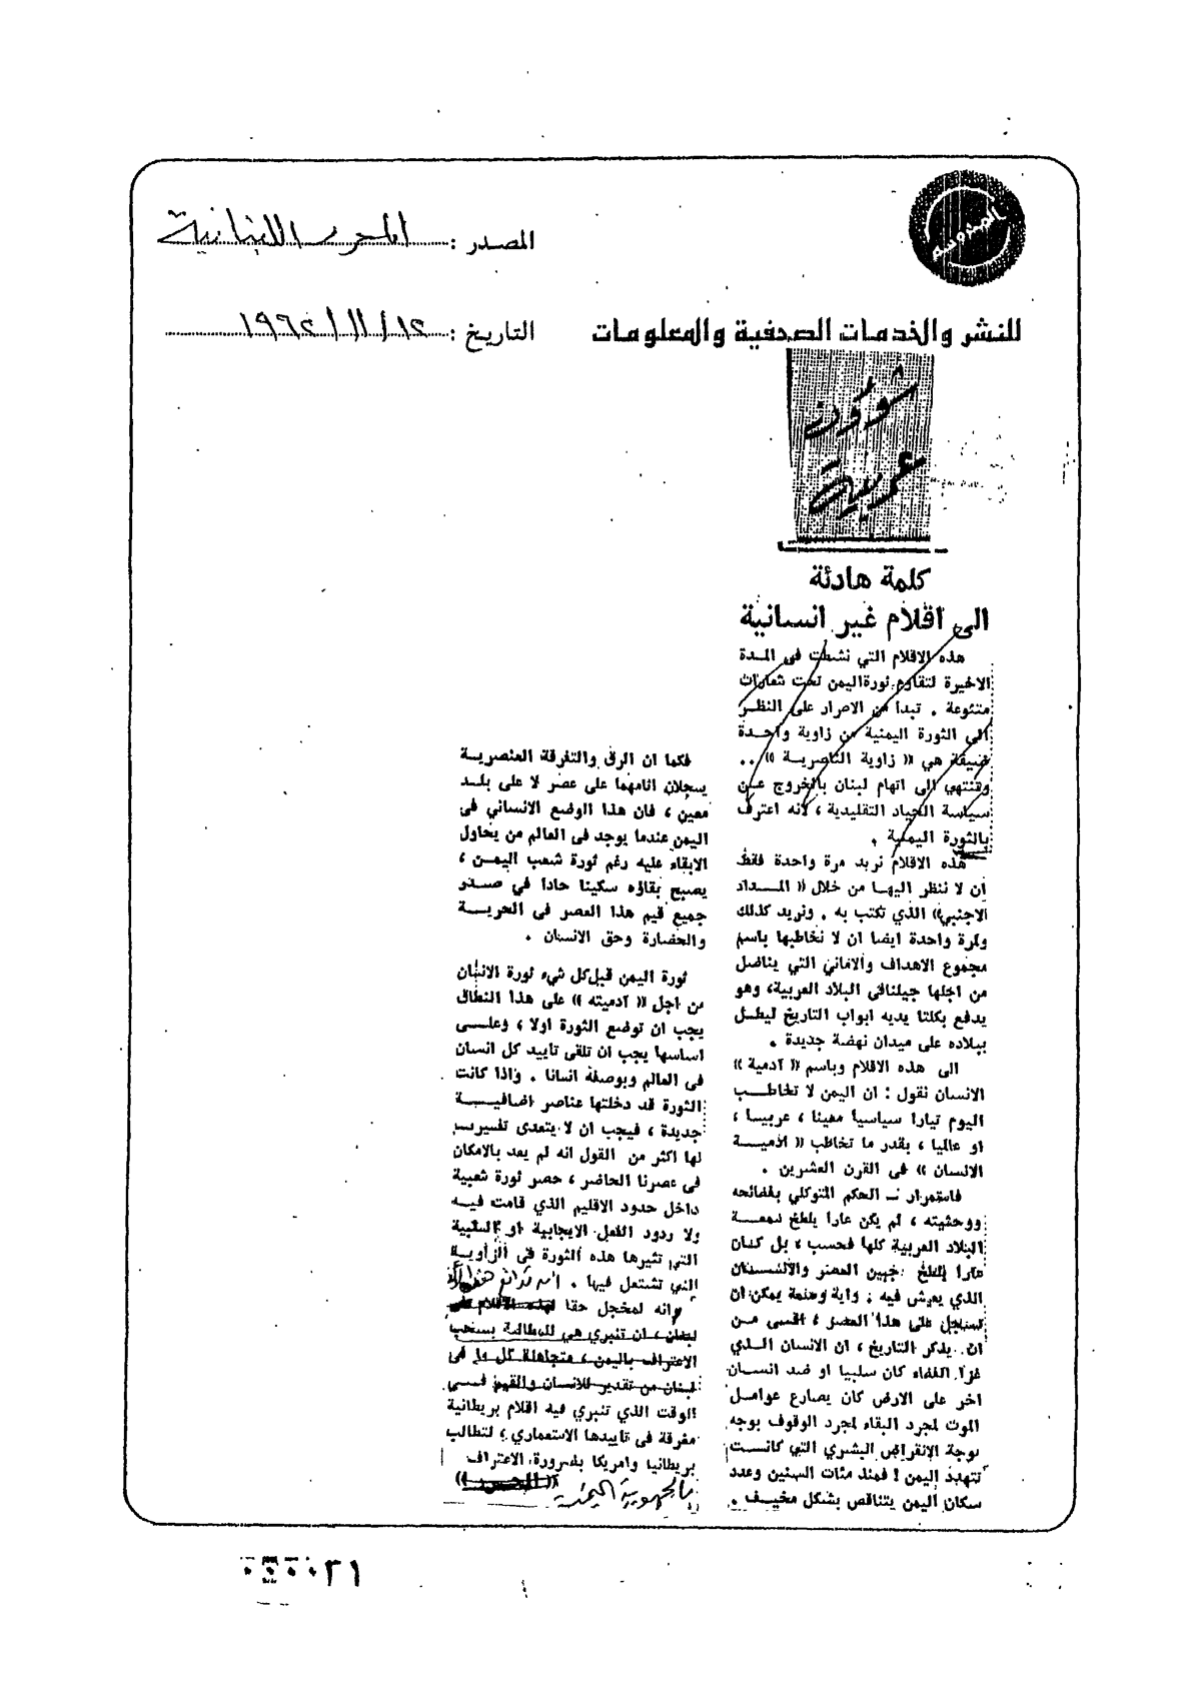 المصدر : المحرر اللبنانية
التاريخ : ١٢/ ١١/ ١٩٦٢
للنشر والخدمات الصحفية والمعلومات
شؤون
عربية
كلمة هادئة
الى اقلام غير انسانية
هذه الاقلام التي نشطت فى المدة
الاخيرة لتقاوم ثورة اليمن تحت شعارات
متنوعة . تبدأ من الاصرار على النظر
الى الثورة اليمنية من زاوية واحدة
ضيقة هي « زاوية الناصرية » ..
وتنتهي الى اتهام لبنان بالخروج عن
سياسة الحياد التقليدية ، لانه اعترف
بالثورة اليمنية .
هذه الاقلام نريد مرة واحدة فقط
ان لا ننظر اليها من خلال « المداد
الاجنبي» الذي تكتب به . ونريد كذلك
ولمرة واحدة ايضا ان لا نخاطبها باسم
مجموع الاهداف والاماني التي يناضل
من اجلها جيلنا فى البلاد العربية، وهو
يدفع بكلتا يديه ابواب التاريخ ليطل
ببلاده على ميدان نهضة جديدة .
الى هذه الاقلام وباسم « آدمية »
الانسان نقول : ان اليمن لا تخاطب
اليوم تيارا سياسيا معينا ، عربيا ،
او عالميا ، بقدر ما تخاطب « ادمية
الانسان » فى القرن العشرين .
فاستمرار الحكم المتوكلي بفضائحه
ووحشيته ، لم يكن عارا يلطخ سمعة
البلاد العربية كلها فحسب ، بل كان
عارا يلطخ جبين العصر والانسان
الذي يعيش فيه : واية وصمة يمكن ان
تسجل على هذا العصر ، اقسى من
ان يذكر التاريخ ، ان الانسان الذي
غزا الفضاء كان سلبيا او ضد انسان
اخر على الارض كان يصارع عوامل
الموت لمجرد البقاء لمجرد الوقوف بوجه
موجة الانقراض البشري التي كانت
تتهدد اليمن ! فمنذ مئات السنين وعدد
سكان اليمن يتناقص بشكل مخيف .
فكما ان الرق والتفرقة العنصرية
يسجلان اثامهما على عصر لا على بلد
معين ، فان هذا الوضع الانساني فى
اليمن عندما يوجد فى العالم من يحاول
الابقاء عليه رغم ثورة شعب اليمن ،
يصبح بقاؤه سكينا حادا في صدر
جميع قيم هذا العصر فى الحرية
والحضارة وحق الانسان .
ثورة اليمن قبل كل شيء ثورة الانسان
من اجل « آدميته » على هذا النطاق
يجب ان توضع الثورة اولا ، وعلى
اساسها يجب ان تلقى تاييد كل انسان
فى العالم وبوصفه انسانا . واذا كانت
الثورة قد دخلتها عناصر اضافية
جديدة ، فيجب ان لا يتعدى تفسير
لها اكثر من القول انه لم يعد بالامكان
فى عصرنا الحاضر ، حصر ثورة شعبية
داخل حدود الاقليم الذي قامت فيه
ولا ردود الفعل الايجابية او السلبية
التي تثيرها هذه الثورة فى الزاوية
التي تشتعل فيها .
وانه لمخجل حقا لهذه الاقلام على
لبنان ، ان تنبري هي للمطالبة بسحب
الاعتراف باليمن ، متجاهلة كل ما فى
لبنان من تقدير للانسان والقيم فى
الوقت الذي تنبري فيه اقلام بريطانية
مغرقة فى تاييدها الاستعماري ، لتطالب
بريطانيا وامريكا بضرورة الاعتراف
بالجمهورية اليمنية
٢١